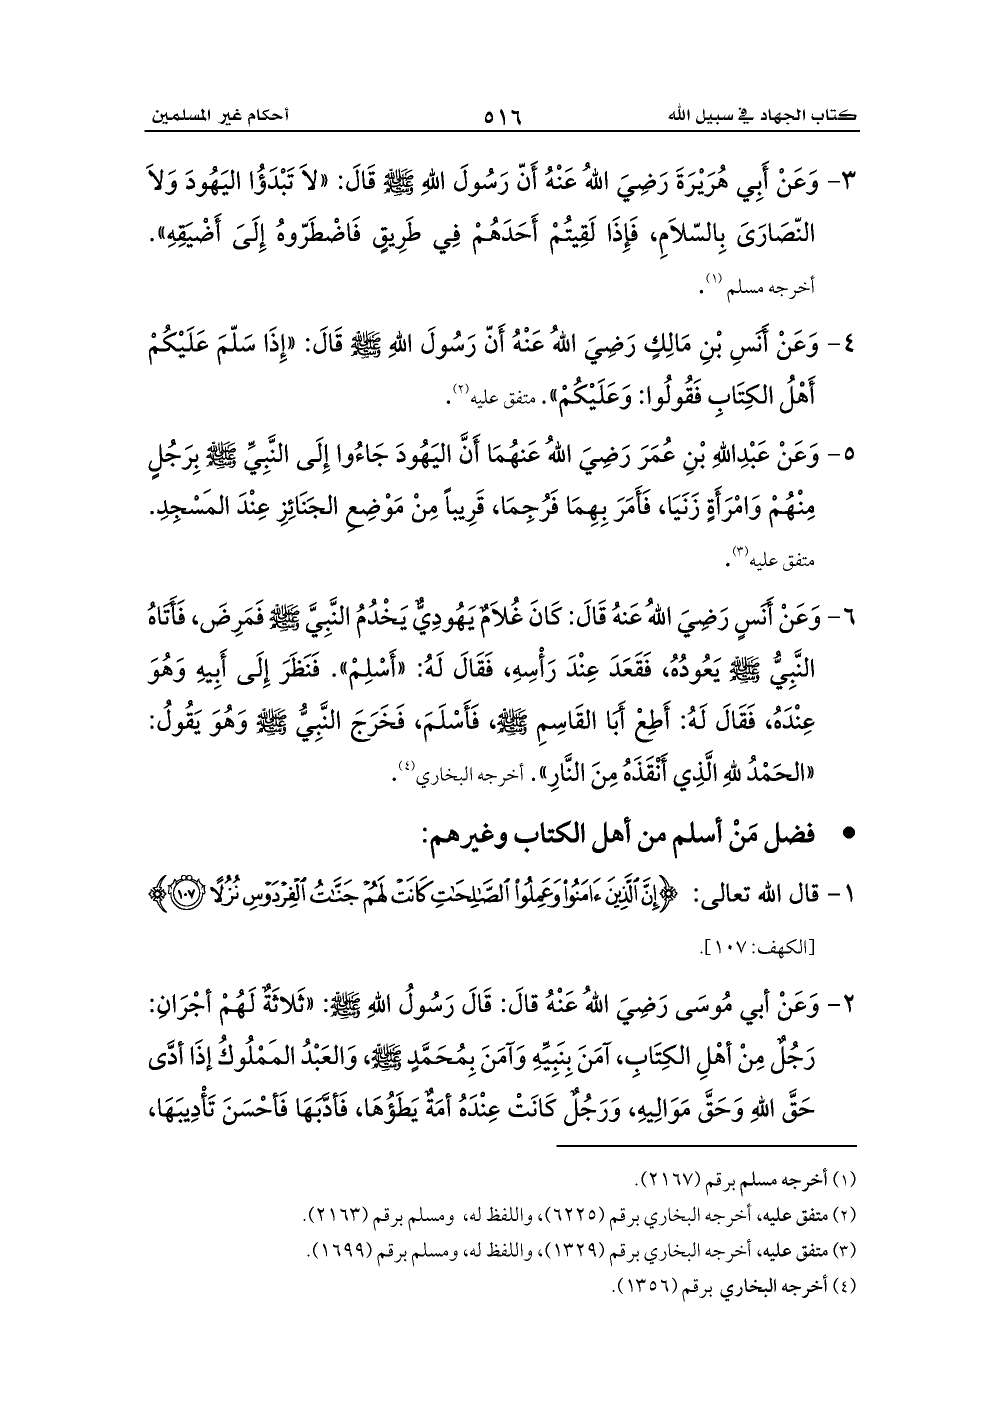 كتاب الجهاد في سبيل الله ٥١٦ أحكام غير المسلمين
٣- وَعَنْ أَبِي هُرَيْرَةَ رَضِيَ اللهُ عَنْهُ أَنّ رَسُولَ اللهِ ﷺ قَالَ: «لاَ تَبْدَؤُا اليَهُودَ وَلاَ
النّصَارَىَ بِالسّلاَمِ، فَإِذَا لَقِيتُمْ أَحَدَهُمْ فِي طَرِيقٍ فَاضْطَرّوهُ إِلَىَ أَضْيَقِهِ».
أخرجه مسلم (١).
٤- وَعَنْ أَنَسِ بْنِ مَالِكٍ رَضِيَ اللهُ عَنْهُ أَنّ رَسُولَ اللهِ ﷺ قَالَ: «إِذَا سَلّمَ عَلَيْكُمْ
أَهْلُ الكِتَابِ فَقُولُوا: وَعَلَيْكُمْ». متفق عليه(٢).
٥- وَعَنْ عَبْدِاللهِ بْنِ عُمَرَ رَضِيَ اللهُ عَنهُمَا أَنَّ اليَهُودَ جَاءُوا إِلَى النَّبِيِّ ﷺ بِرَجُلٍ
مِنْهُمْ وَامْرَأَةٍ زَنَيَا، فَأَمَرَ بِهِمَا فَرُجِمَا، قَرِيباً مِنْ مَوْضِعِ الجَنَائِزِ عِنْدَ المَسْجِدِ.
متفق عليه(٣).
٦- وَعَنْ أَنَسٍ رَضِيَ اللهُ عَنهُ قَالَ: كَانَ غُلاَمٌ يَهُودِيٌّ يَخْدُمُ النَّبِيَّ ﷺ فَمَرِضَ، فَأَتَاهُ
النَّبِيُّ ﷺ يَعُودُهُ، فَقَعَدَ عِنْدَ رَأْسِهِ، فَقَالَ لَهُ: «أَسْلِمْ». فَنَظَرَ إِلَى أَبِيهِ وَهُوَ
عِنْدَهُ، فَقَالَ لَهُ: أَطِعْ أَبَا القَاسِمِ ﷺ، فَأَسْلَمَ، فَخَرَجَ النَّبِيُّ ﷺ وَهُوَ يَقُولُ:
«الحَمْدُ للهِ الَّذِي أَنْقَذَهُ مِنَ النَّارِ». أخرجه البخاري(٤).
• فضل مَنْ أسلم من أهل الكتاب وغيرهم:
١- قال الله تعالى: ﴿إِنَّ ٱلَّذِينَ ءَامَنُوا۟ وَعَمِلُوا۟ ٱلصَّـٰلِحَـٰتِ كَانَتْ لَهُمْ جَنَّـٰتُ ٱلْفِرْدَوْسِ نُزُلًا ١٠٧﴾
[الكهف: ١٠٧].
٢- وَعَنْ أبي مُوسَى رَضِيَ اللهُ عَنْهُ قالَ: قَالَ رَسُولُ اللهِ ﷺ: «ثَلاثَةٌ لَهُمْ أجْرَانِ:
رَجُلٌ مِنْ أهْلِ الكِتَابِ، آمَنَ بِنَبِيِّهِ وَآمَنَ بِمُحَمَّدٍ ﷺ، وَالعَبْدُ المَمْلُوكُ إذَا أدَّى
حَقَّ اللهِ وَحَقَّ مَوَالِيهِ، وَرَجُلٌ كَانَتْ عِنْدَهُ أمَةٌ يَطَؤُهَا، فَأدَّبَهَا فَأحْسَنَ تَأْدِيبَهَا،
(١) أخرجه مسلم برقم (٢١٦٧).
(٢) متفق عليه، أخرجه البخاري برقم (٦٢٢٥)، واللفظ له، ومسلم برقم (٢١٦٣).
(٣) متفق عليه، أخرجه البخاري برقم (١٣٢٩)، واللفظ له، ومسلم برقم (١٦٩٩).
(٤) أخرجه البخاري برقم (١٣٥٦).